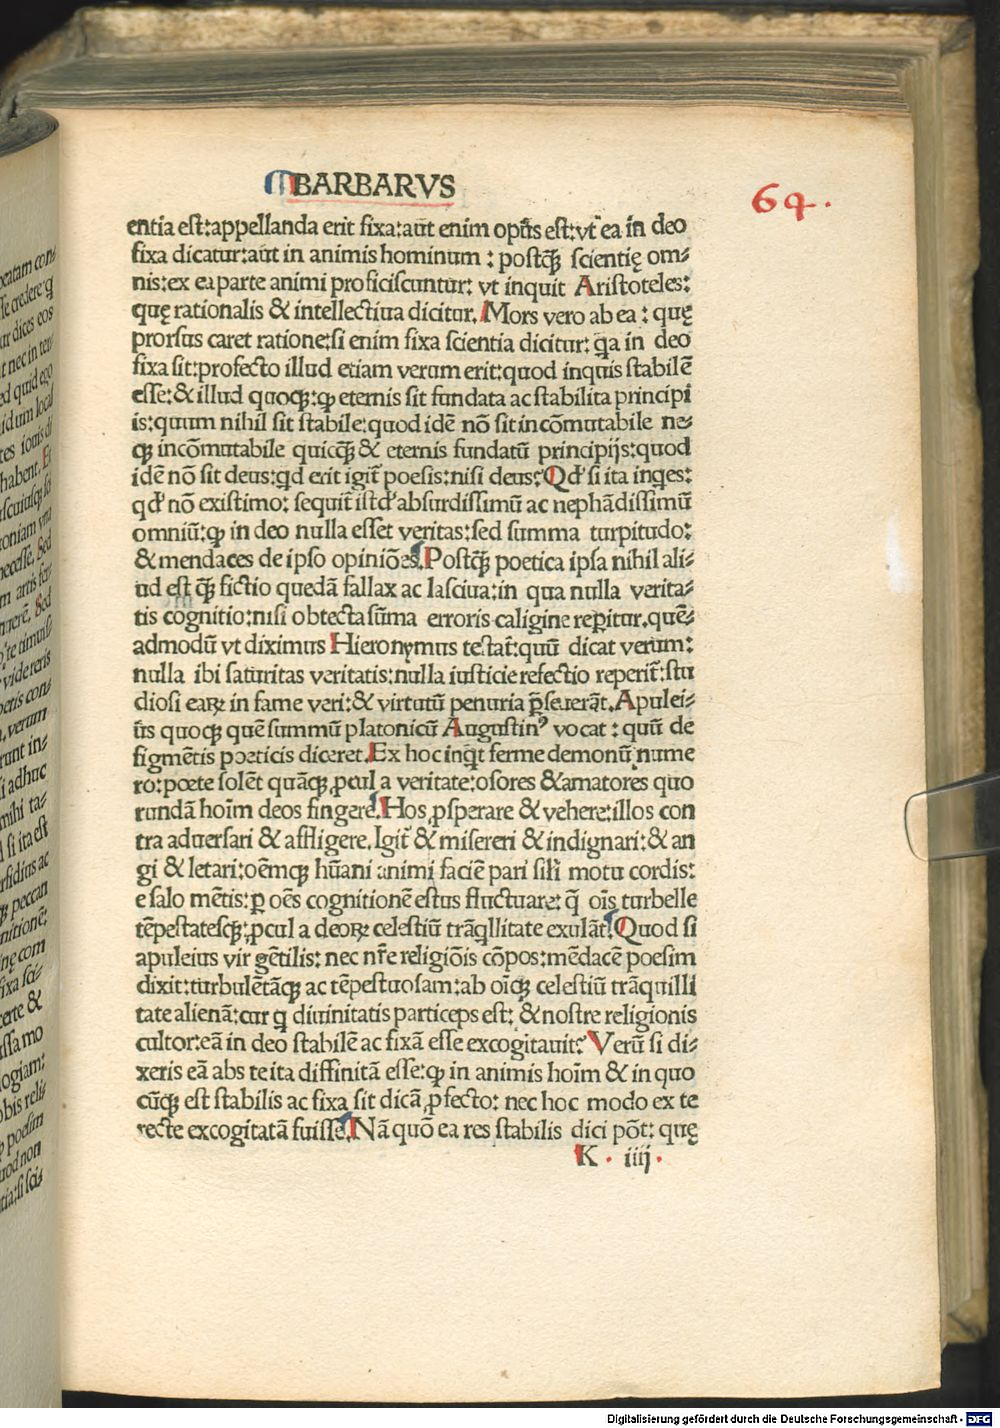 BARBARVS
64.
entia est:appellanda erit fixa:aut enim optās est:vt ea in deo
fixa dicatur:aut in animis hominum : postq̄ȝ scientię om⸗
nis:ex ea parte animi proficiscuntur: vt inquit Aristoteles:
quę rationalis & intellectiua dicitur. Mors vero ab ea : quę
prorsus caret ratione:si enim fixa scientia dicitur: q̄a in deo
fixa sit:profecto illud etiam verum erit:quod inquis stabilē
esse:& illud quoqȝ:ꝙ eternis sit fundata ac stabilita principi
is:quum nihil sit stabile:quod idē nō sit incōmutabile ne⸗
qȝ incōmutabile quicq̄ȝ & eternis fundatū principijs:quod
idē nō sit deus:qd erit igit̄ poesis:nisi deus:Qd' si ita inqes:
qd' nō existimo: sequit̄ istd' absurdissimū ac nephādissimū
omniū:ꝙ in deo nulla esset veritas:sed summa turpitudo:
& mendaces de ipso opiniōes.Postq̄ȝ poetica ipsa nihil ali⸗
ud est q̄ȝ fictio quedā fallax ac lasciua:in qua nulla verita⸗
tis cognitio:nisi obtecta sūma erroris caligine reperitur.quē⸗
admodū vt diximus Hieronymus testat̄:quū dicat verum:
nulla ibi saturitas veritatis:nulla iusticie refectio reperit̄:stu
diosi eaꝝ in fame veri:& virtutū penuria p̄seuerāt. Apulei⸗
us quoqȝ quē summū platonicū Augustinꝰ vocat : quū de
figmētis poeticis diceret.Ex hoc inqt ferme demonū nume
ro:poete solēt quāqȝ ꝓcul a veritate:osores & amatores quo
rundā hoīm deos fingere.Hos ꝓsperare & vehere:illos con
tra aduersari & affligere.Igit̄ & misereri & indignari:& an
gi & letari:oēmqȝ hūani animi faciē pari sil'i motu cordis:
e salo mētis:ꝑ oēs cognitionē estus fluctuare:q̄ oīs turbelle
tēpestatesqȝ:ꝓcul a deoꝝ celestiū trāqllitate exulāt.Quod si
apuleius vir gētilis: nec nr̄e religiōis cōpos:mēdacē poesim
dixit:turbulētāqȝ ac tēpestuosam:ab oīqȝ celestiū trāquilli
tate alienā:cur q diuinitatis particeps est: & nostre religionis
cultor:eā in deo stabilē ac fixā esse excogitauit: Verū si di⸗
xeris eā abs te ita diffinitā esse:ꝙ in animis hoīm & in quo
cūqȝ est stabilis ac fixa sit dicā ꝓfecto: nec hoc modo ex te
recte excogitatā fuisse.Nā quō ea res stabilis dici pōt: quę
K . iiij .
eatam con⸗
se credere q
ur dices eos
t nec in ter⸗
ed quid ego
tes iouis di
habent.
mihi ta⸗
d si ita est
rfidius ac
peccan
nitionē:
fixa sci⸗
erte &
ogiam:
poesim
uod non
tia:si sci⸗
Digitalisierung gefördert durch die Deutsche Forschungsgemeinschaft - DFG